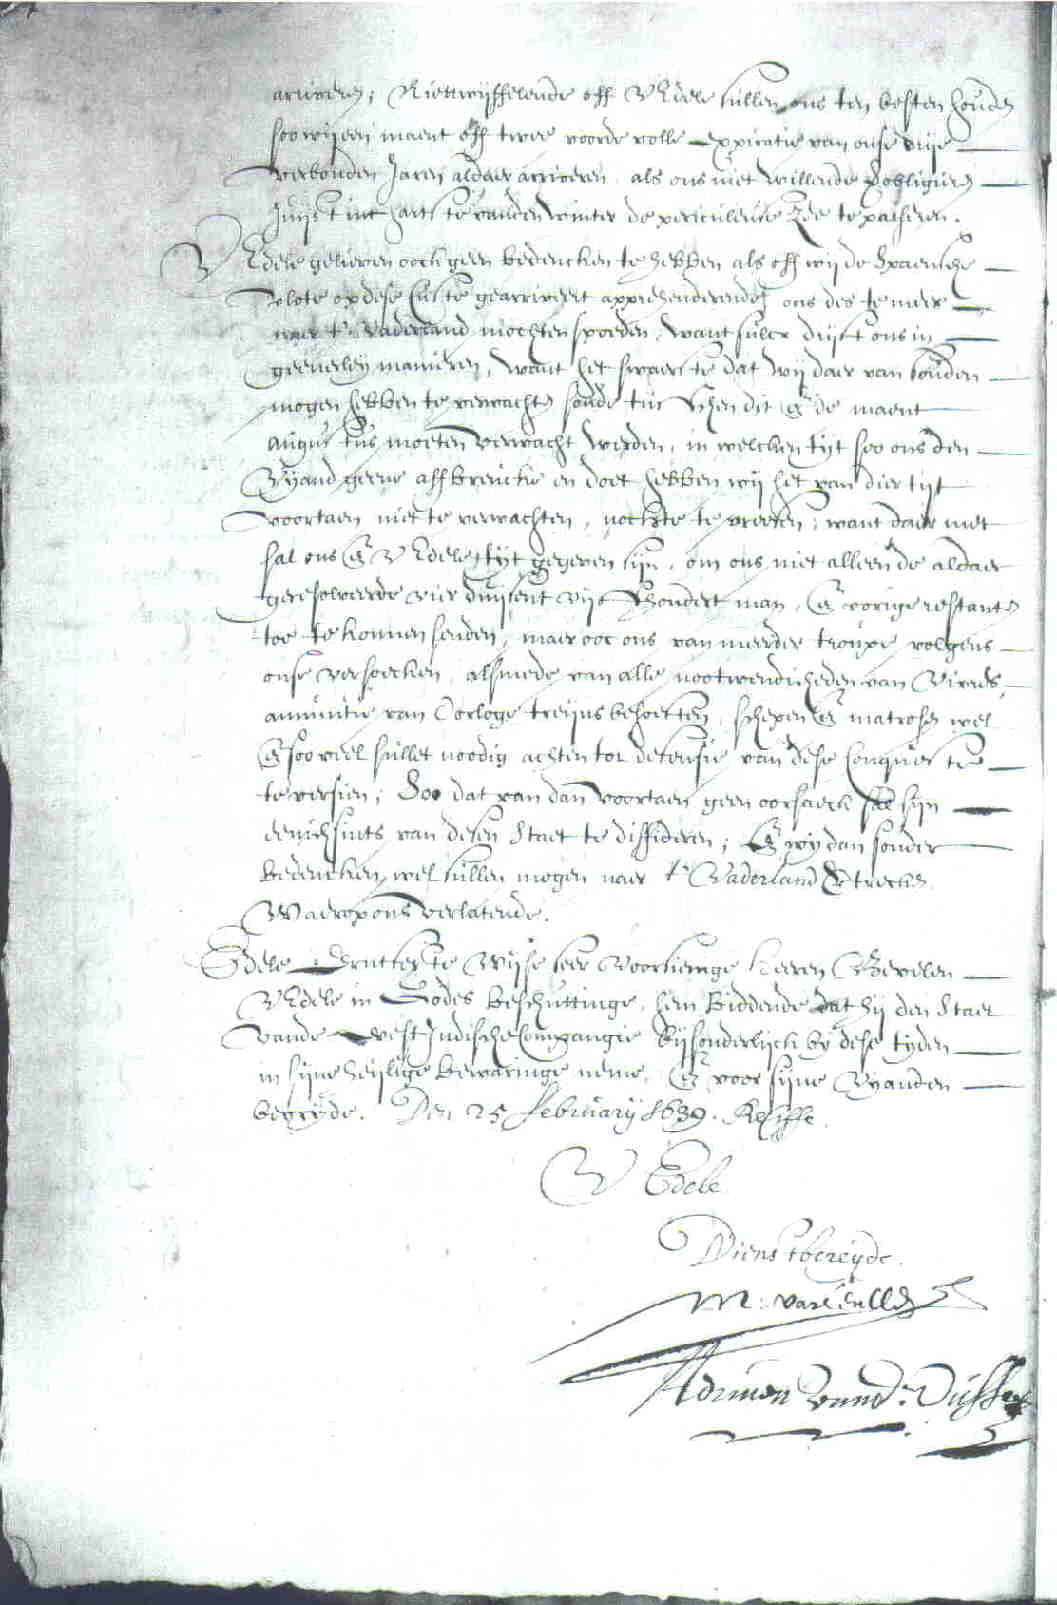 arriveren; Niettwijffelende off VEdele sullen ons ten besten houden
soo wij een maent off twee voor de volle expiratie van onse drije
verbonden Jaren aldaer arriveren, als ons niet willende obligeren
Juijst int hartste vanden winter de periculeuse Zee te passeren.
VEdele gelieven oock geen bedencken te hebben als off wij de Spaensche
vlote op dese Custe gearriveert apprehenderende, ons des te meer
naer t' Vaderland mochten spoeden, want sulcx dijst ons in
geenerleij manieren, want het swaerste dat wij daer van souden
mogen hebben te verwachten soude tusschen dit en de maent
augustus moeten verwacht werden, in welcken tijt soo ons den
Vyand geene affbreucke en doet hebben wij het van dier tijt
voortaen niet te verwachten, nochte te vreesen; want daer met
sal ons en VEdele tijt gegeven sijn, om ons niet alleen de aldaer
geresolveerde vier duijsent vijf hondert man, en vorige restanten
toe te konnen senden, maer ooc ons van meerder troupe volgens
onse versoecken, alsmede van alle nootwendicheden van Vivres,
amunitie van Oorloge treijns behoeften, schepen en matrosen wel
en soo veel sullet noodig achten tot defensie van dese Conqueste
te versien; Soo dat van dan voortaen geen oorsaeck sal sijn
eenichsints van desen Staet te diffideren; en wij dan sonder
bedencken wel sullen mogen naer t' Vaderland vertrecken.
Waerop ons verlatende.
Edele Erntfeste Wijse seer Voorsienige Heeren Bevelen
VEdele in Godes beschuttinge, hem biddende dat hij den Staet
vande West Indische Compangie bijsonderlijck by dese tyden
in sijne heijlige bewaringe neme, en voor sijne Vyanden
bevrijde. Den 25 februarij 1639. Reciffe.
V Edele
Dienstbereyde.
M: van Ceullen
Adriaen vander Dussen